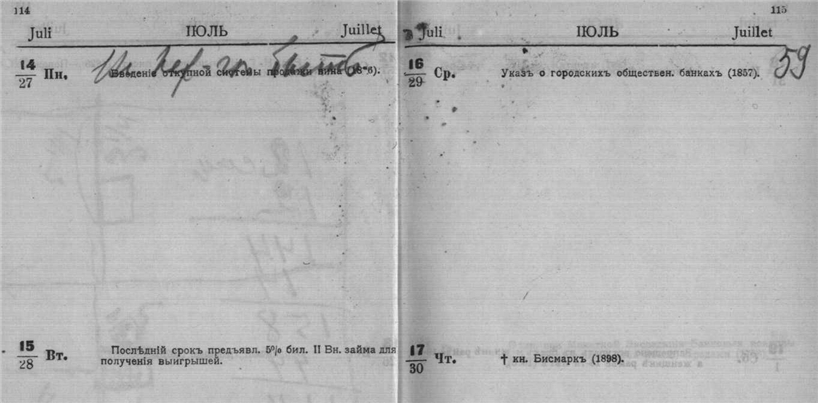 114
Juli ІЮЛЬ Juillet
14/27 Пн. Введеніе откупной системы продажи вина
15/28 Вт. Послѣдній срокъ предъявл. 5% бил. II Вн. займа для
полученія выигрышей.
115
Juli ІЮЛЬ Juillet
59
16/29 Ср. Указъ о городскихъ обществен. банкахъ (1857).
17/30 Чт. † кн. Бисмаркъ (1898).